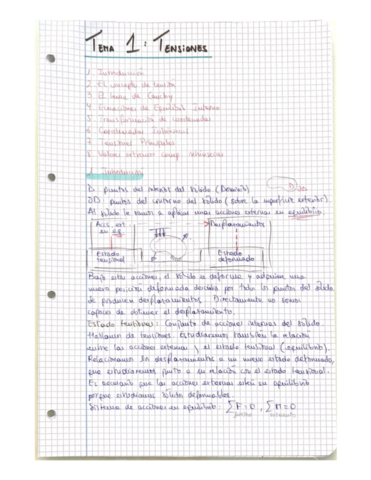 TEMA 1: TENSIONES
1 Introducción
2 El concepto de tensión
3 El tensor de Cauchy
4 Ecuaciones de Equilibrio Interno
5 Transformación de coordenadas
6 Coordenadas
7 Tensiones Principales
8 Valores extremos comp. intrínsecas
1 Introducción
D: puntos del interior del sólido (Dominio)
∂D: puntos del contorno del sólido (sobre la superficie exterior)
Al sólido le vamos a aplicar unas acciones externas en equilibrio
Acc. ext en eq.
Desplazamientos
Estado tensional
Estado deformado
Bajo estas acciones el sólido se deforma y adquiere una
nueva posición deformada decidida por todos los puntos del sólido
se producen desplazamientos. Directamente no somos
capaces de obtener el desplazamiento.
Estado tensional: Conjunto de acciones internas del sólido.
Hablamos de tensiones. Estudiaremos también la relación
entre las acciones externas y el estado tensional (equilibrio).
Relacionamos los desplazamientos a un nuevo estado deformado,
que estudiaremos junto a su relación con el estado tensional.
Es necesario que las acciones externas estén en equilibrio
porque estudiamos sólidos deformables.
Sistema de acciones en equilibrio: ΣF=0, ΣM=0
fuerzas momentos